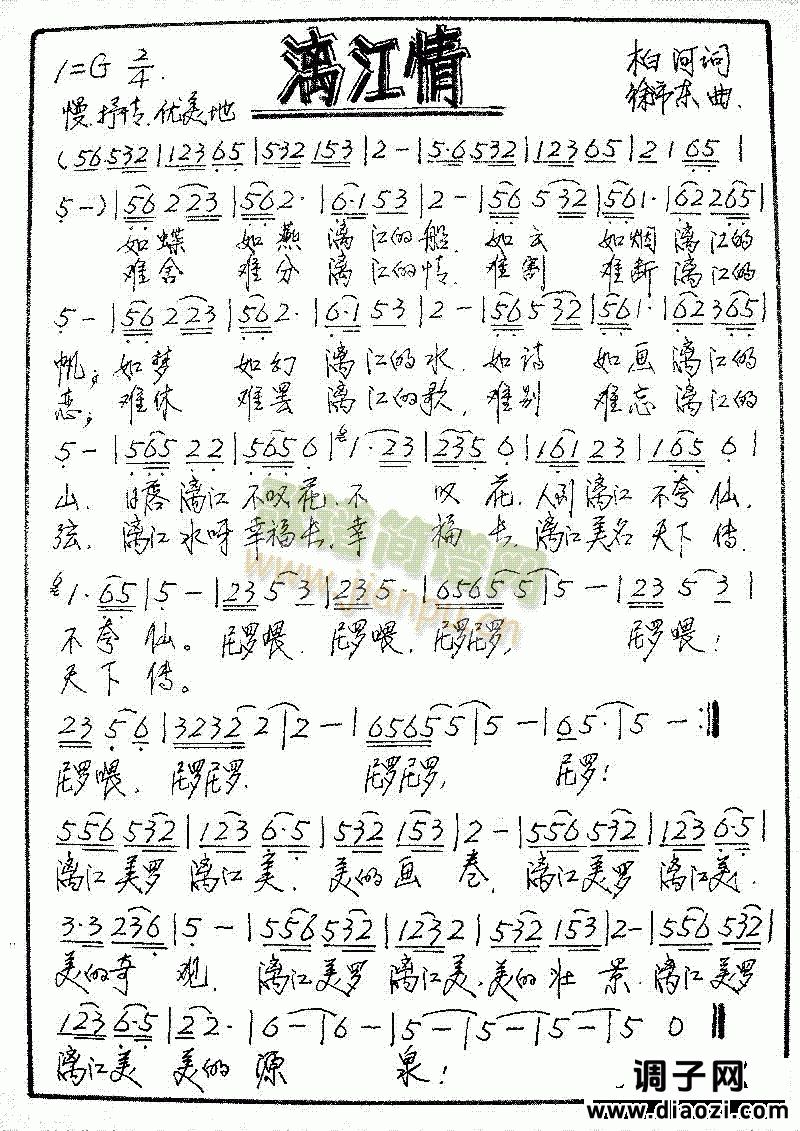 漓江情
1=G 2/4
柏河词
慢.抒情.优美地
徐沛东曲.
(56 532 | 123 65 | 532 153 | 2 - | 5·6 532 | 123 65 | 2 1 65 |
5 -) | 56 2 23 | 56 2· | 6·1 53 | 2 - | 56 532 | 56 1· | 62 265 |
如蝶 如燕 漓江的船. 如云 如烟 漓江的
难舍 难分 漓江的情. 难割 难断 漓江的
5 - | 56 2 23 | 56 2· | 6·1 53 | 2 - | 56 532 | 56 1· | 623 65 |
帆; 如梦 如幻 漓江的水. 如诗 如画 漓江的
恋; 难休 难罢 漓江的歌, 难别 难忘 漓江的
5 - | 565 22 | 565 0 | 1·23 | 235 0 | 161 23 | 165 0 |
山. 漓江 不叹花. 不 叹 花. 人到漓江 不夸 仙.
弦. 漓江水呀 幸福长. 幸 福 长. 漓江美名 天下 传.
1·65 | 5 - | 23 5 3 | 235· | 65655 | 5 - | 23 5 3 |
不夸 仙。 尼罗喂. 尼罗喂. 尼罗尼罗, 尼罗喂!
天下 传。
23 5 6 | 32322 | 2 - | 65655 | 5 - | 65· | 5 - :‖
尼罗喂. 尼罗尼罗. 尼罗尼罗, 尼罗!
556 532 | 123 6·5 | 532 153 | 2 - | 556 532 | 123 6·5 |
漓江美罗 漓江美. 美的画 卷. 漓江美罗 漓江美.
3·3 236 | 5 - | 556 532 | 123 2 | 532 153 | 2 - | 556 532 |
美的奇 观. 漓江美罗 漓江美. 美的壮 景. 漓江美罗
123 6·5 | 22· | 6 - | 6 - | 5 - | 5 - | 5 - | 5 0 ‖
漓江美 美的 源 泉!
歌谱简谱网
www.jianpu.cn
调子网
www.diaozi.com